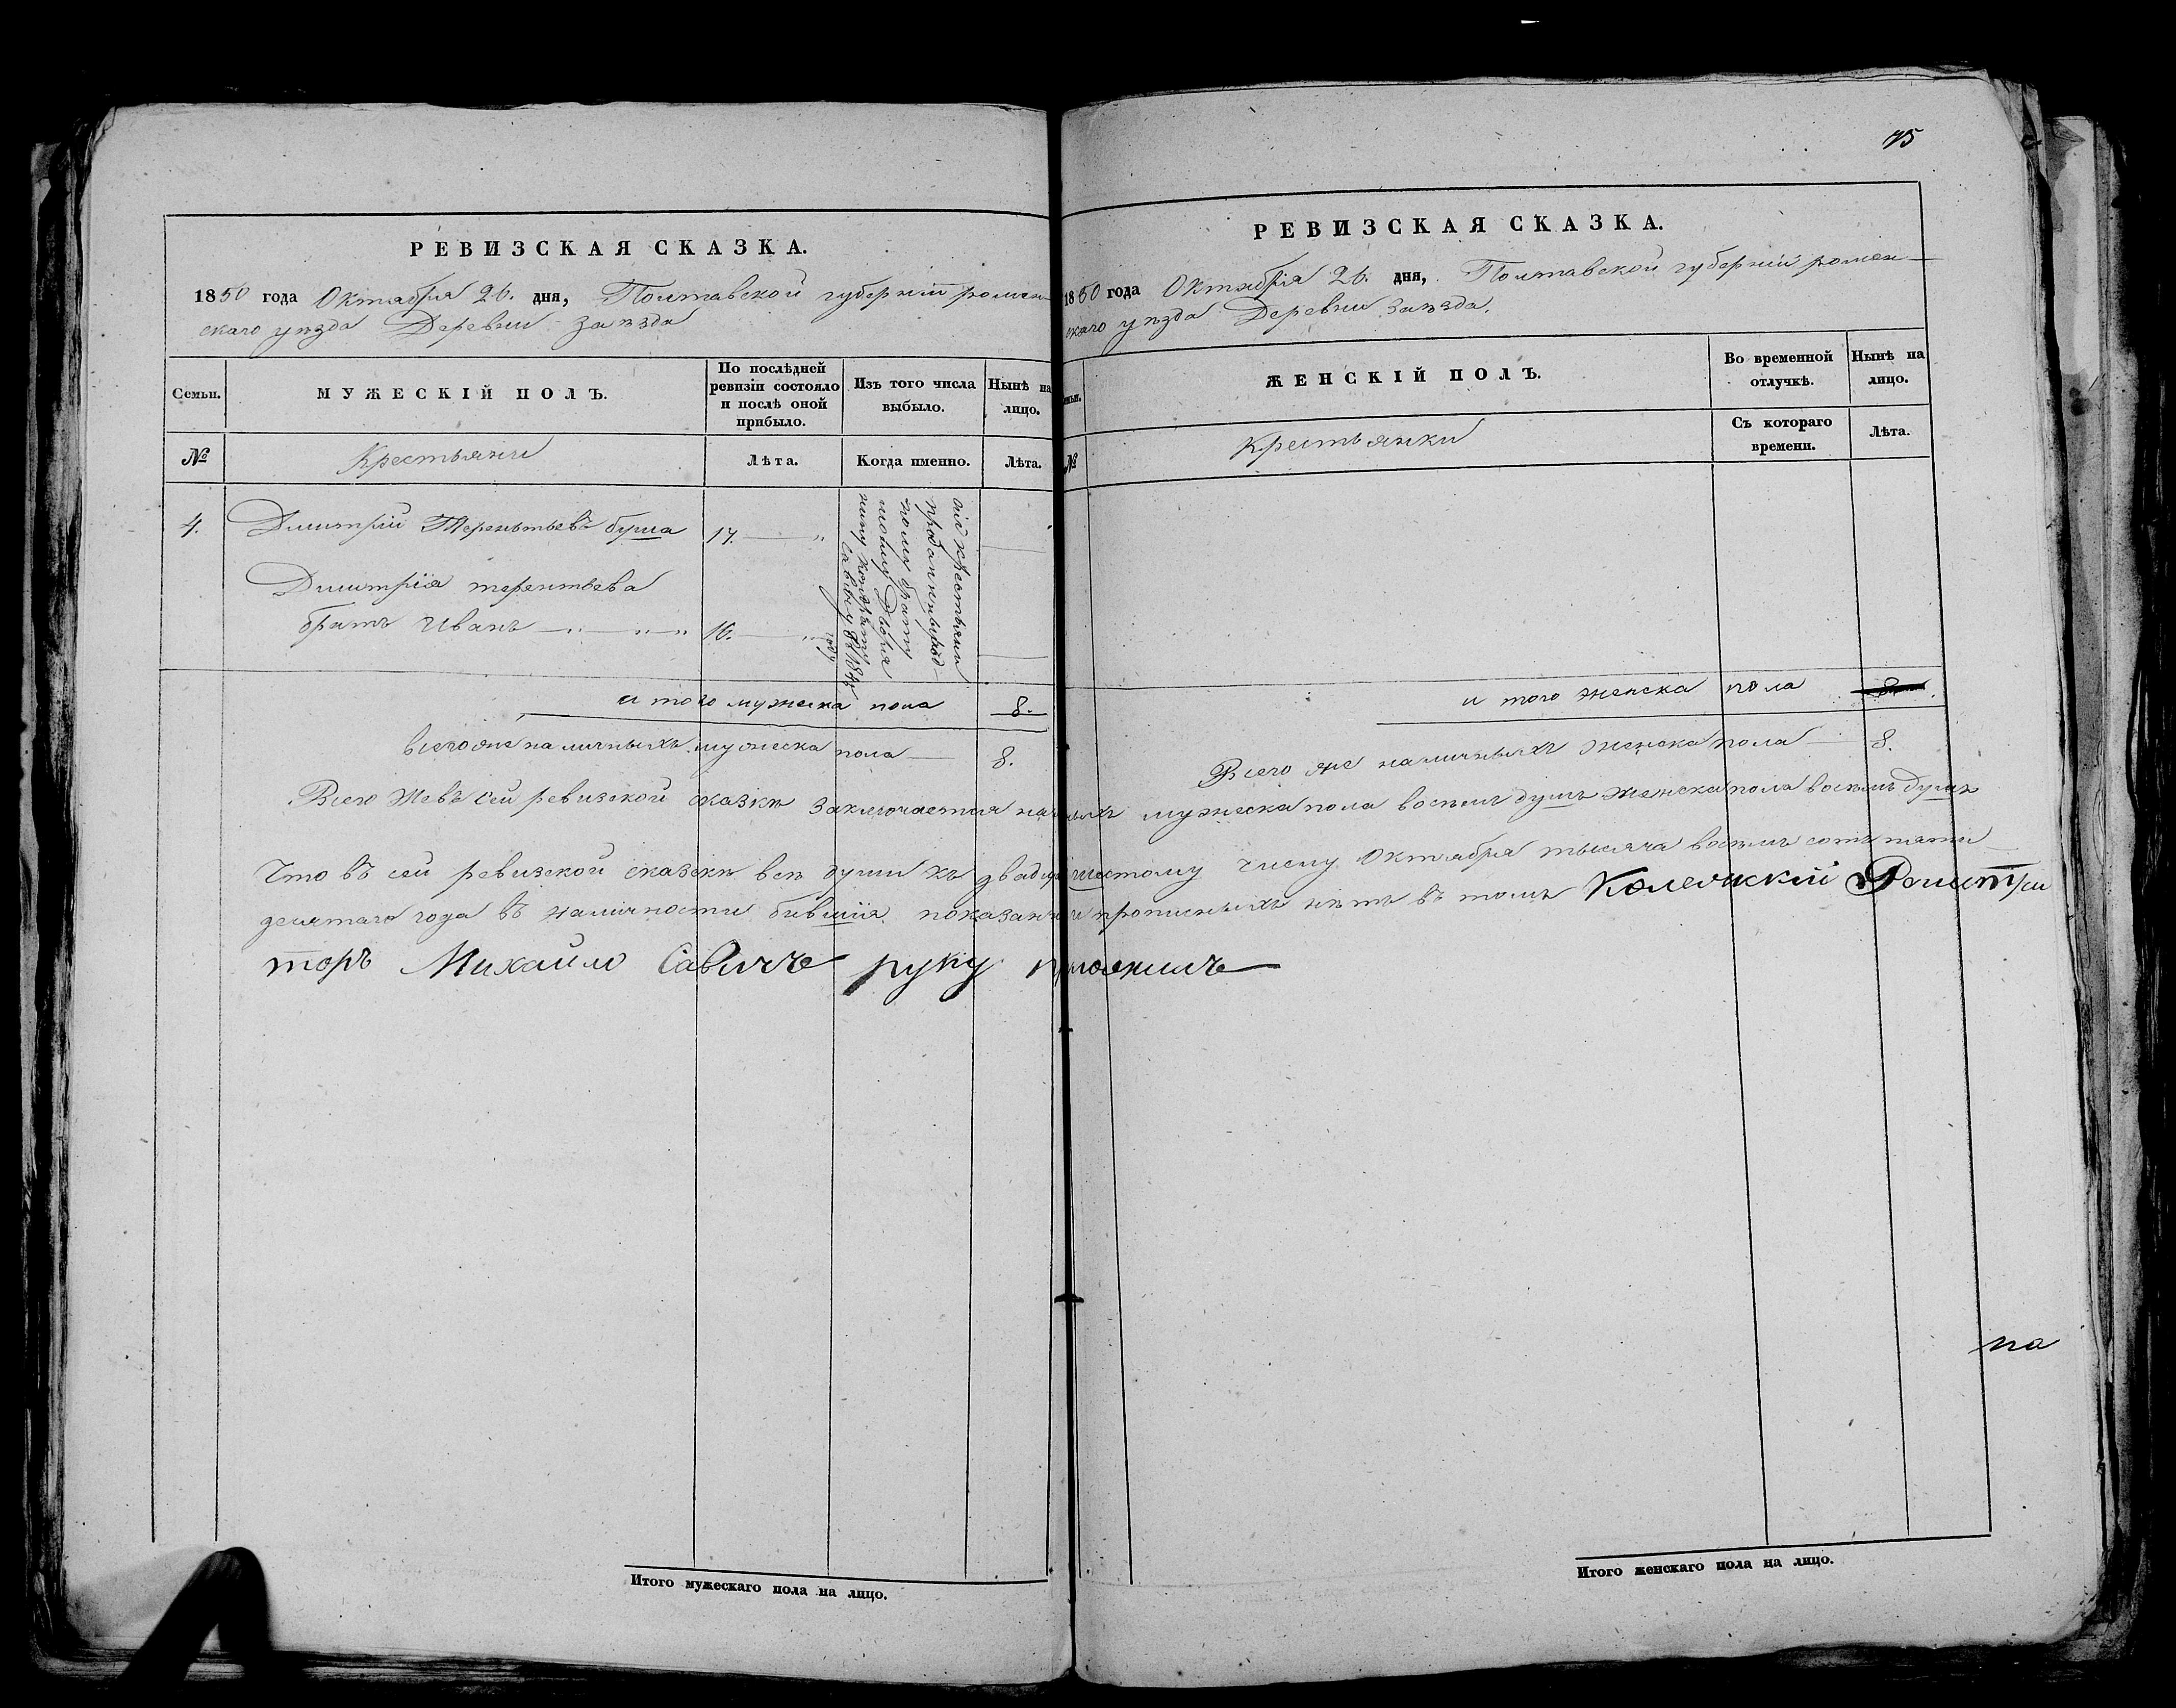 РЕВИЗСКАЯ СКАЗКА.
1850 года Октября 26. дня, Полтавской губернiи ромен-
скаго уѣзда Деревни Заѣзда
Семьи.
МУЖЕСКІЙ ПОЛЪ.
По послѣдней ревизіи состояло и послѣ оной прибыло.
Изъ того числа выбыло.
Нынѣ на лицо.
№
Крестьяни
Лѣта.
Когда именно.
Лѣта.
4.
Димитрiй Терентьевъ буша
17. — "
Димитрiя терентьева
братъ Иванъ — " — " — "
16. — "
сiи крестьяни
проданни род-
ному брату
моему
Савичу в 1845
году
итого мужеска пола 8.
всегоже наличныхъ мужеска пола — 8.
75
РЕВИЗСКАЯ СКАЗКА.
1850 года Октября 26. дня, Полтавской губернiи ромен-
скаго уѣзда Деревни Заѣзда.
ЖЕНСКІЙ ПОЛЪ.
Во временной отлучкѣ.
Нынѣ на лицо.
№
Крестьянки
Съ котораго времени.
Лѣта.
и того женска пола 8
Всего же наличныхъ женска пола — 8.
Всего Жевъ сей ревизской сказкѣ заключается наличныхъ мужеска пола восемъ душъ женска пола восемъ душъ
Что въ сей ревизской сказкѣ всѣ души къ двадцать шестому числу Октября тысяча восемъ сотъ пяти-
десятаго года въ наличности бившiя показани и прописныхъ нѣтъ въ томъ Колежскiй Регистра
торъ Михайло Савичъ руку приложилъ
на
Итого мужескаго пола на лицо.
Итого женскаго пола на лицо.